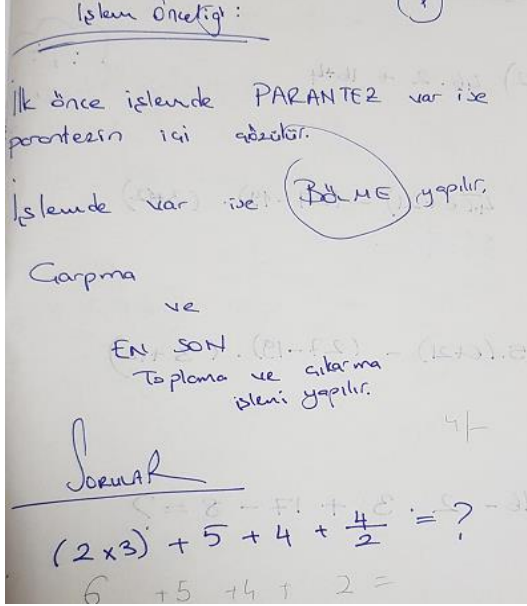 İşlem Önceliği:
İlk önce işlemde PARANTEZ var ise
parantezin içi çözülür.
İşlemde var ise BÖLME yapılır.
Çarpma
ve
EN SON
Toplama ve çıkarma
işlemi yapılır.
SORULAR
(2x3) + 5 + 4 + 4/2 = ?
6 +5 +4 + 2 =